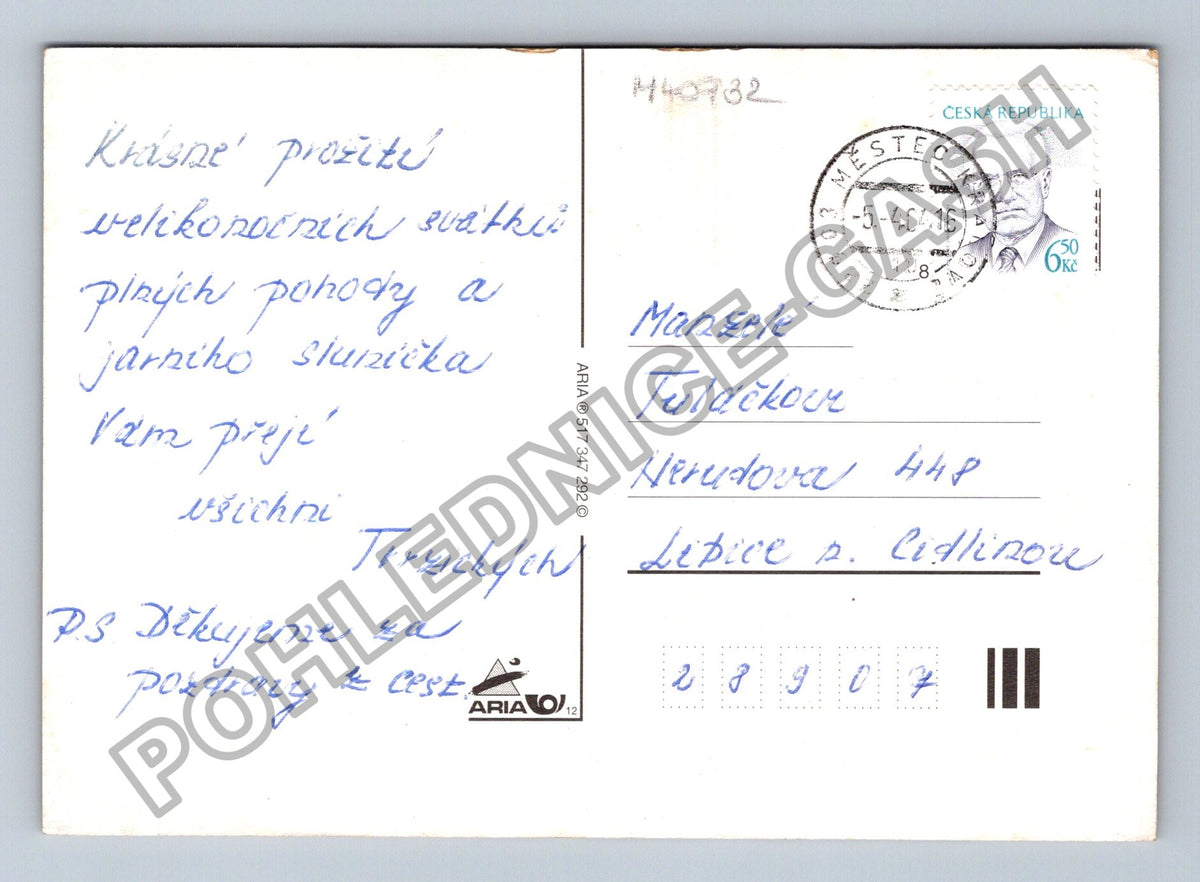 Krásné prožití
velikonočních svátků
plných pohody a
jarního sluníčka
Vám přejí
všichni
P.S Děkujeme za
pozdravy z cest.
ARIA
12
ARIA ® 517 347 292 ©
M40732
ČESKÁ REPUBLIKA
6 50
Kč
MĚSTEC KRÁLOVÉ
-5.-4.
Manželé
Tuláčkovi
Nerudova 448
Libice n. Cidlinou
28907
POHLEDNICE-GASH